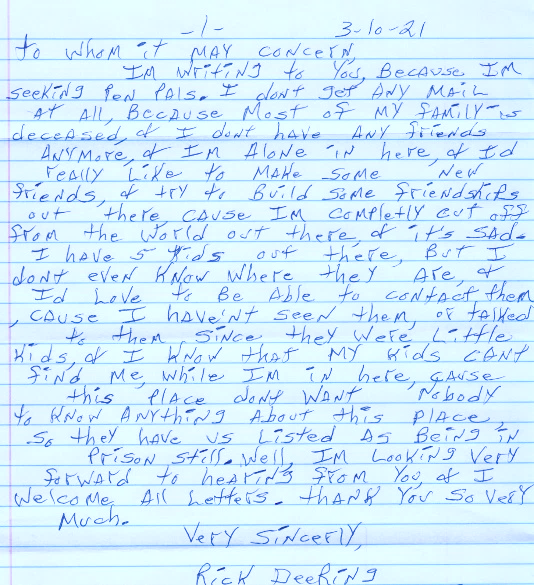 -1-
3-10-21
to whom it MAY concern,
IM writing to You, BecAuse IM
seeking Pen PAls. I dont get ANY MAiL
At All, BecAuse Most of MY fAMiLY is
deceAsed, & I dont hAve ANY friends
ANYMore, & IM ALone in here, & Id
reAllY Like to MAKe soMe New
friends, & trY to Build soMe friendshiPs
out there, cAuse IM coMPletlY cut off
froM the world out there, & it's SAd.
I hAve 5 Kids out there, But I
dont even KNow where they Are, &
Id Love to Be ABle to contAct them
, cAuse I hAveint seen theM, or tALKed
to theM, since they were Little
Kids, & I KNow thAt MY Kids CANt
find Me, while IM in here, cAuse
this PlAce dont wANt NoBody
to KNow ANYthing ABout this PlAce,
so they hAve us Listed As Being in
Prison still. well, IM LooKing VerY
forwArd to heAring froM You, & I
welcoMe All Letters. thANK You so VerY
Much.
VerY SincerlY,
Rick DeeRing